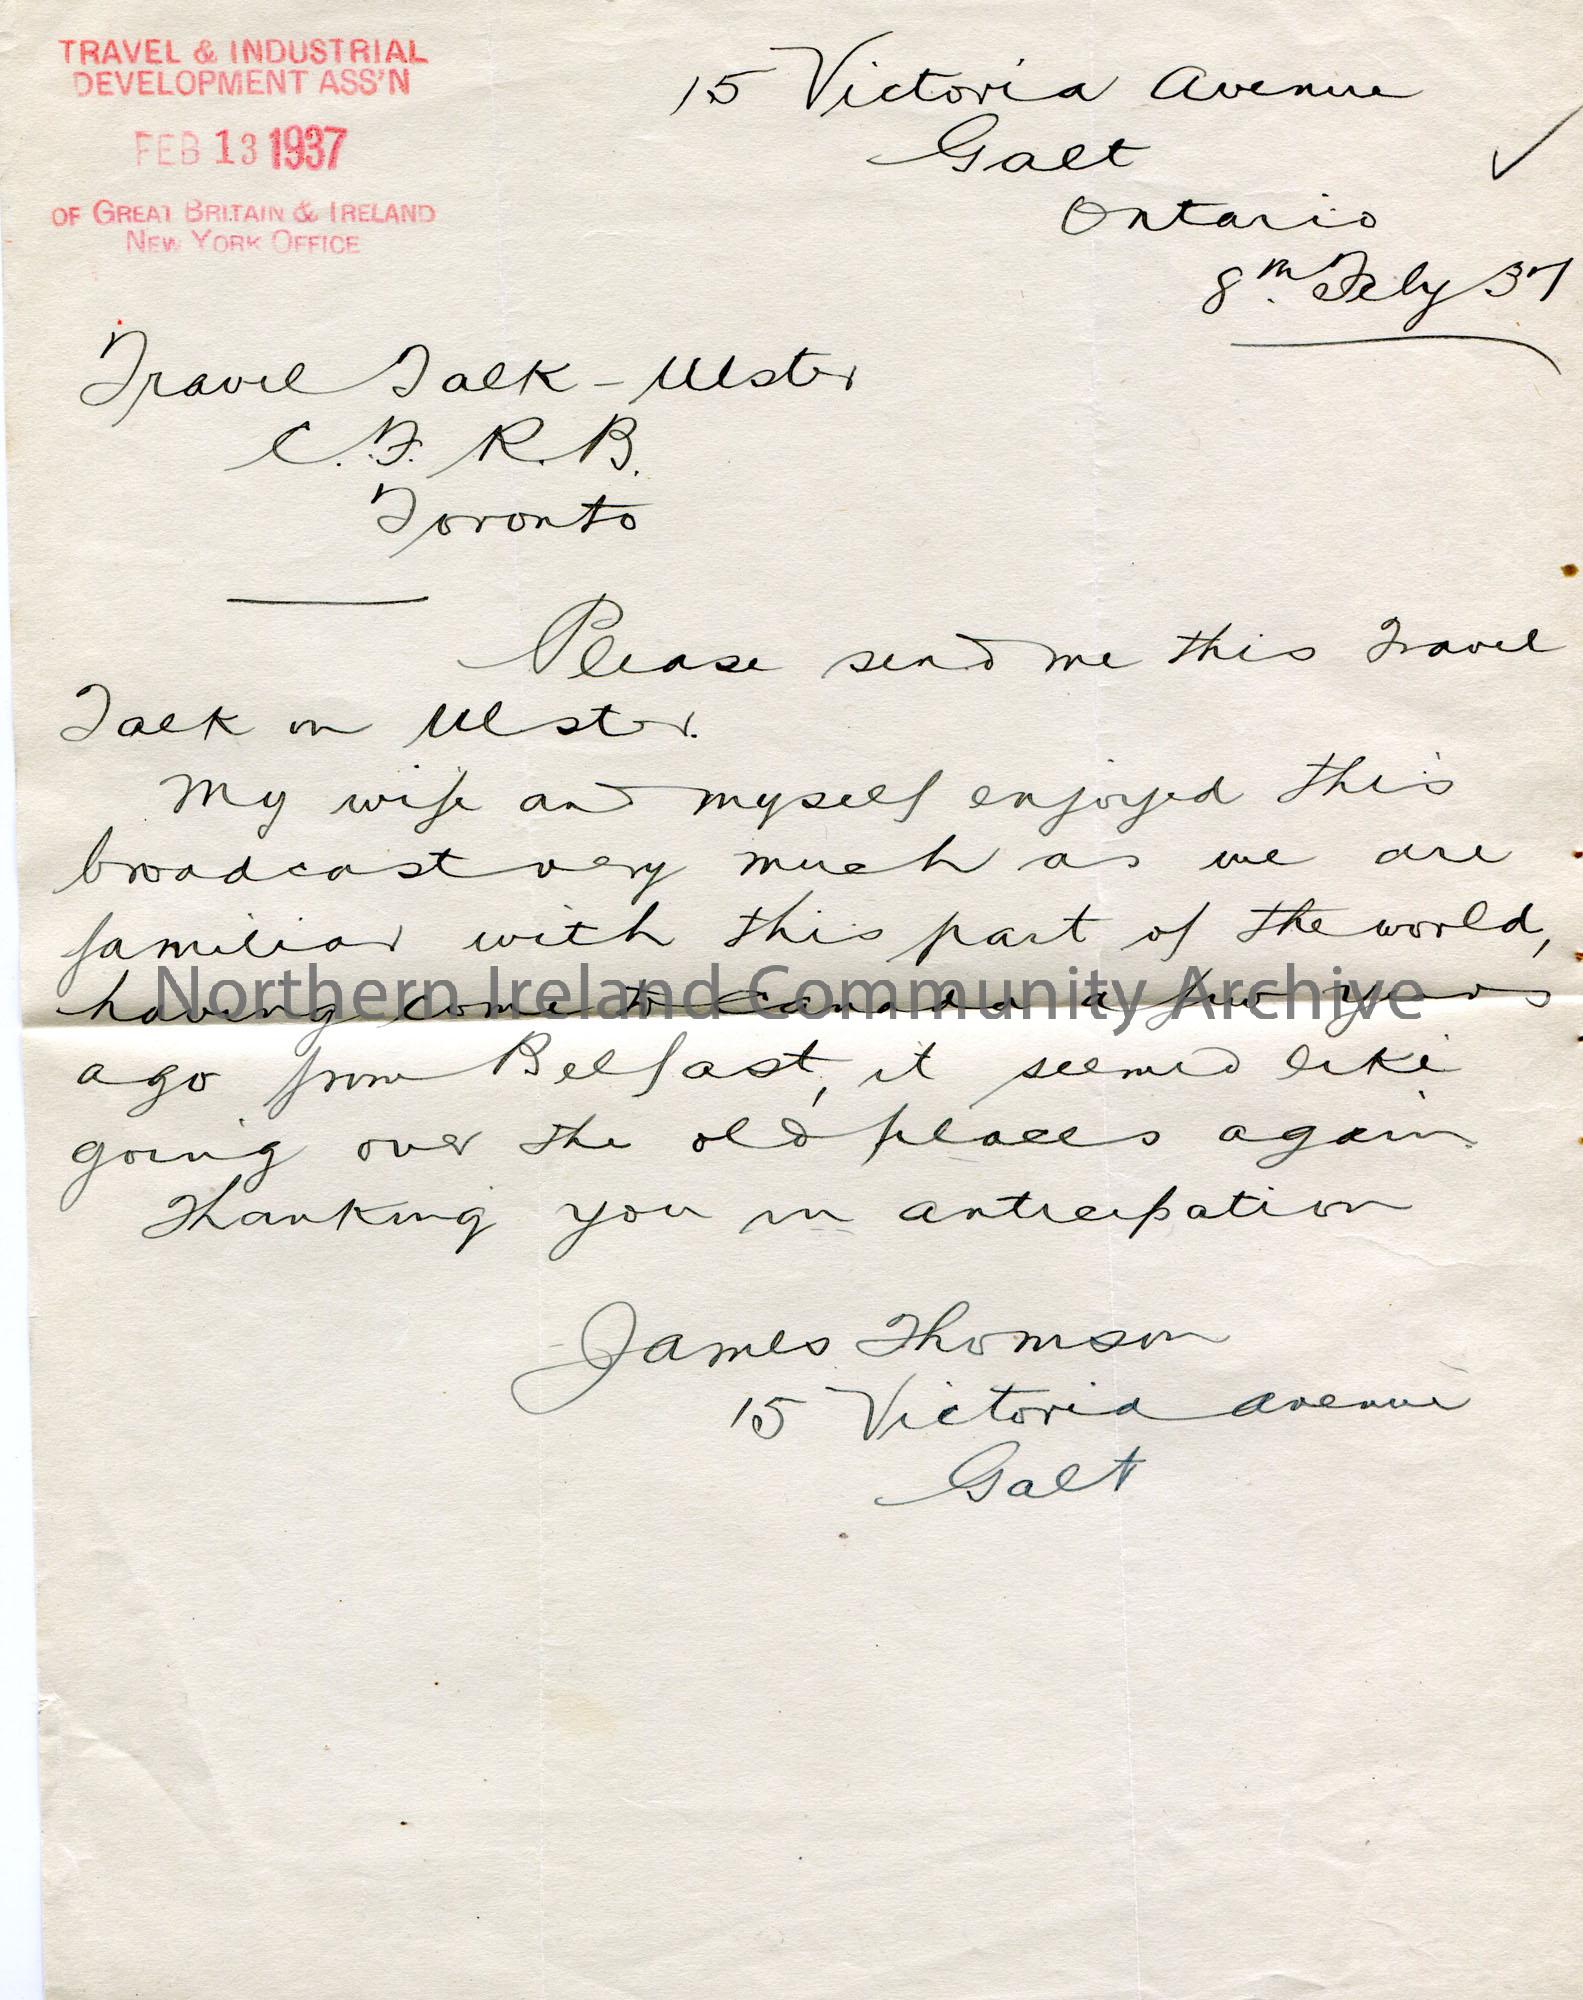 TRAVEL & INDUSTRIAL
DEVELOPMENT ASS'N
FEB 13 1937
OF GREAT BRITAIN & IRELAND
NEW YORK OFFICE
15 Victoria Avenue
Galt
Ontario
8th Feby 37
Travel Talk - Ulster
C.F.R.B.
Toronto
Please send me this Travel
Talk on Ulster.
My wife and myself enjoyed this
broadcast very much as we are
familiar with this part of the world,
having come to Canada a few years
Northern Ireland Community Archive
ago from Belfast, it seemed like
going over the old places again.
Thanking you in anticipation
James Thomson
15 Victoria Avenue
Galt